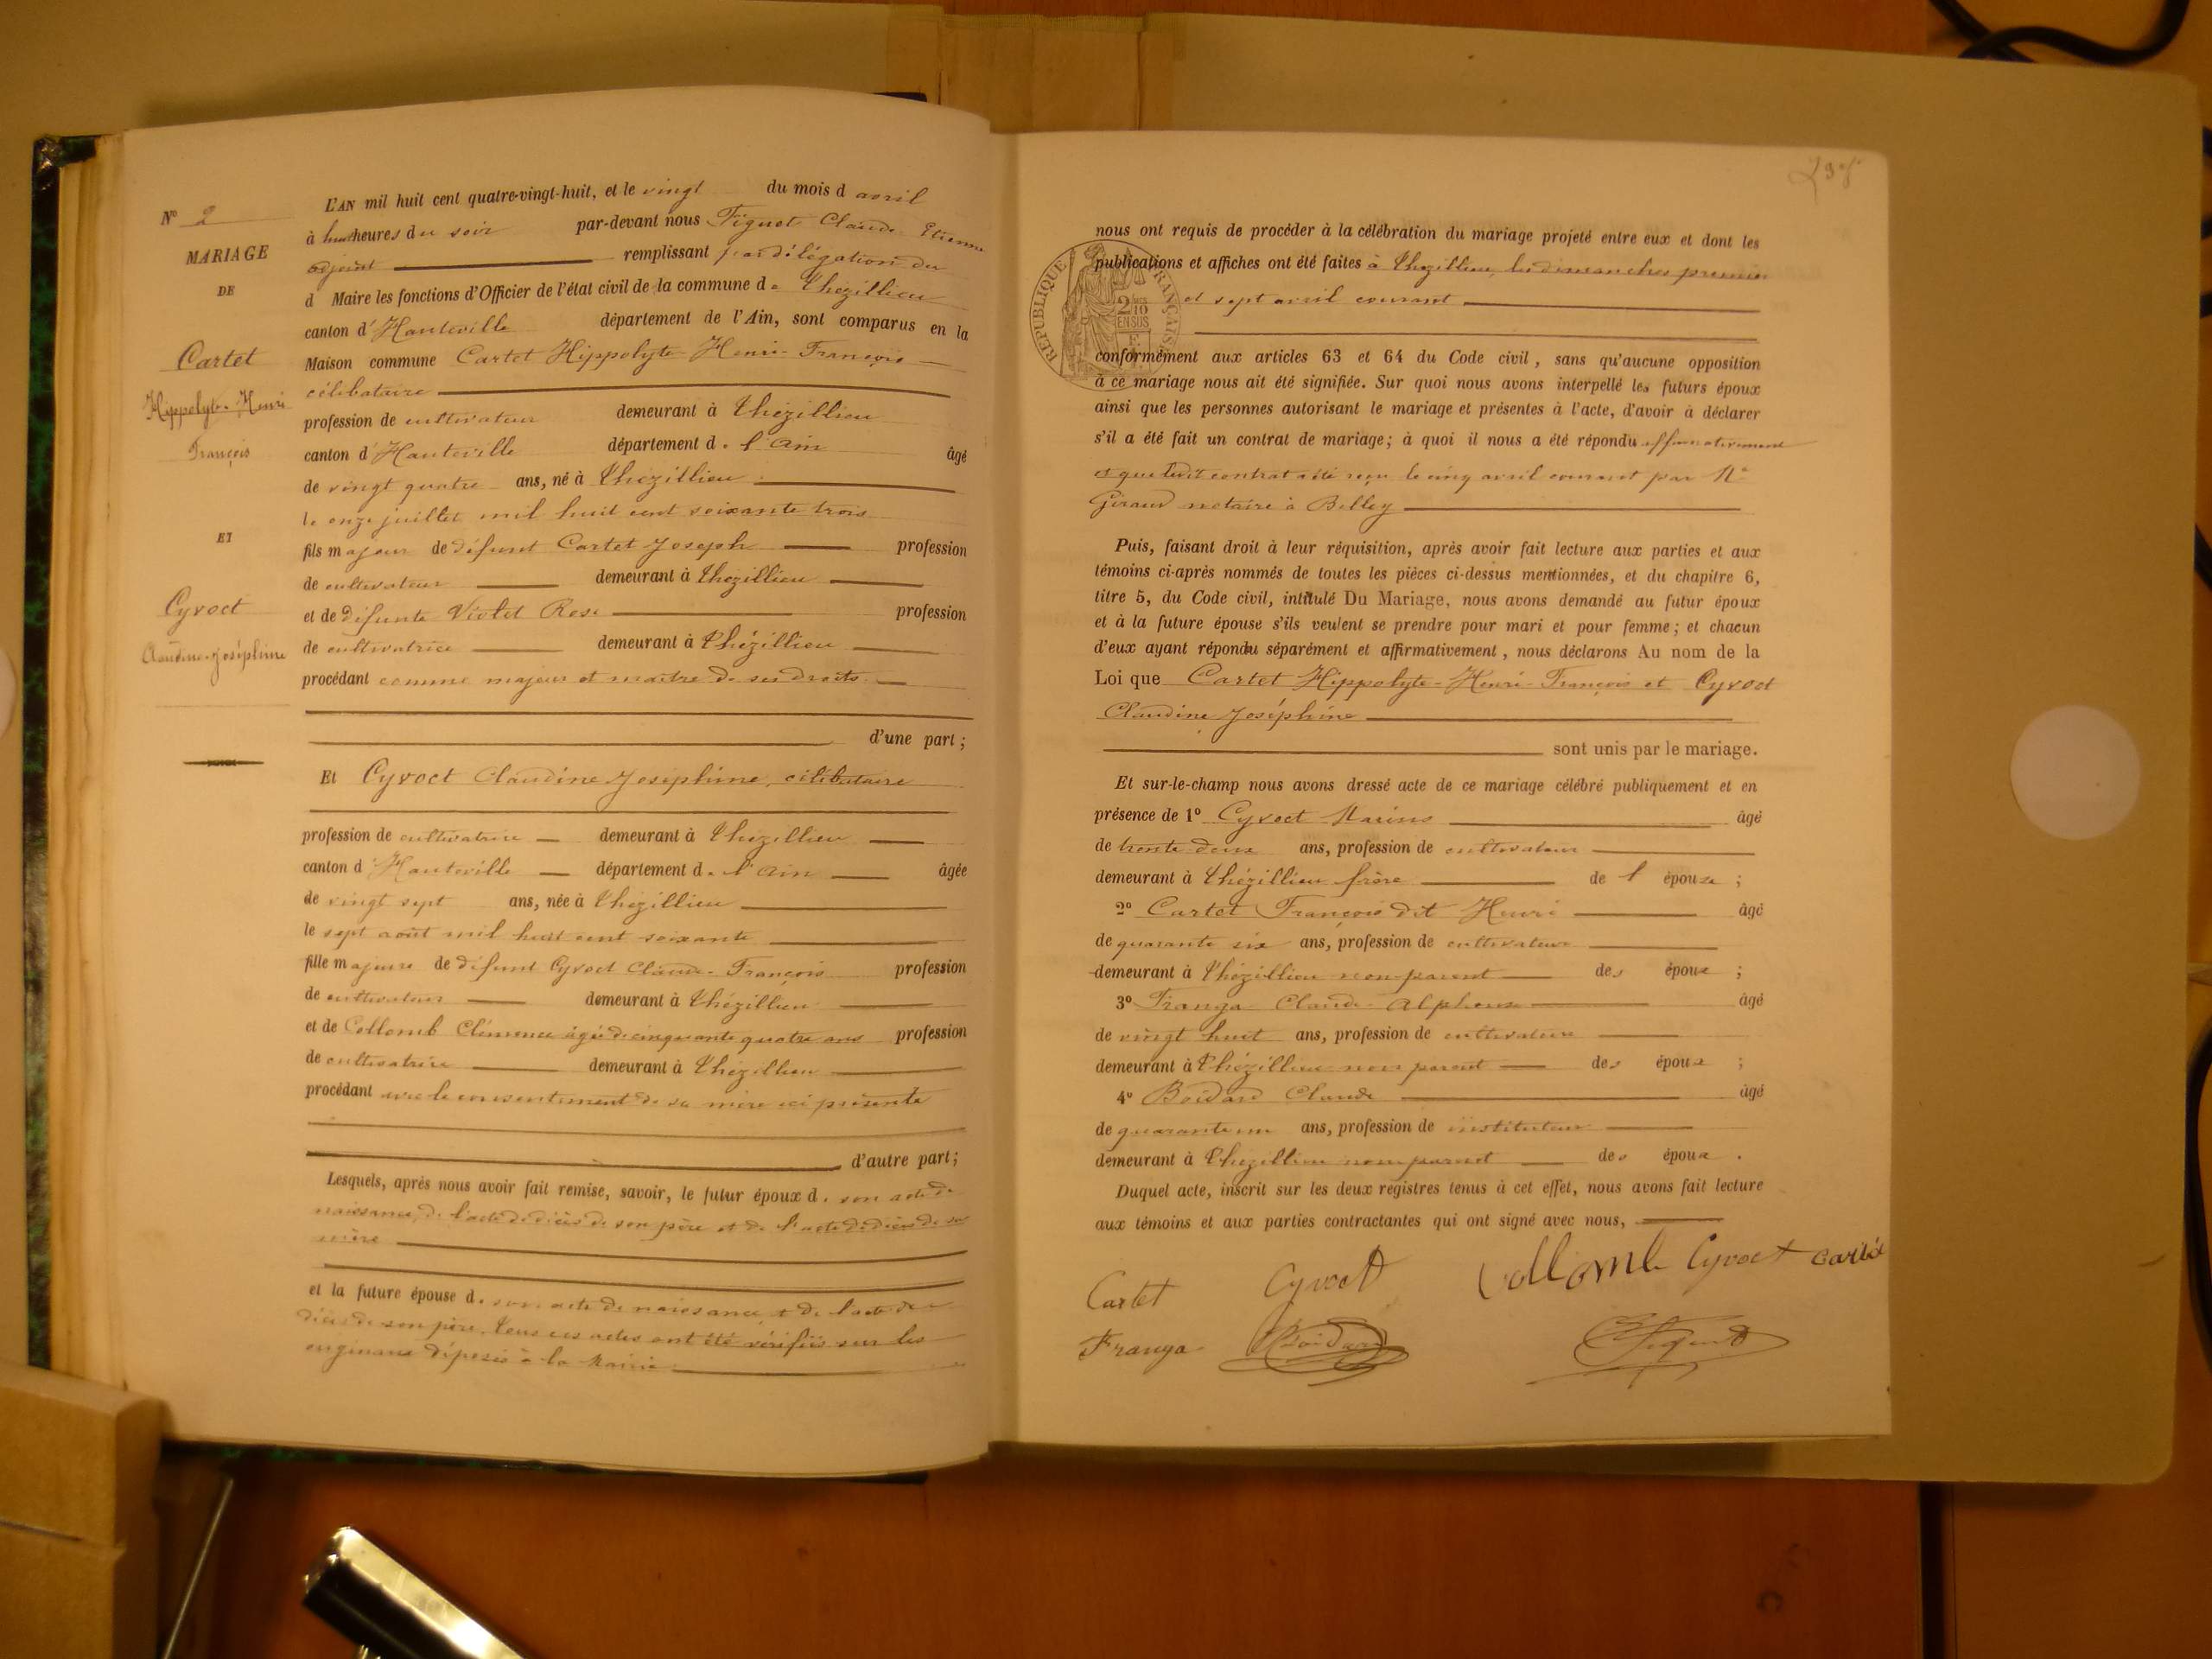 N° 2
MARIAGE
DE
Cartet
Hyppolyte-Henri
François
ET
Cyvoct
Claudine-Joséphine
L'AN mil huit cent quatre-vingt-huit, et le vingt du mois d avril
à huit heures du soir par-devant nous Figuet Claude Etienne
adjoint remplissant par délégation du
d Maire les fonctions d'Officier de l'état civil de la commune de Thézillieu
canton d'Hauteville département de l'Ain, sont comparus en la
Maison commune Cartet Hippolyte-Henri-François
célibataire
profession de cultivateur demeurant à Thézillieu
canton d'Hauteville département de l'Ain âgé
de vingt quatre ans, né à Thézillieu
le onze juillet mil huit cent soixante trois
fils majeur de défunt Cartet Joseph profession
de cultivateur demeurant à Thézillieu
et de défunte Violet Rose profession
de cultivatrice demeurant à Thézillieu
procédant comme majeur et maître de ses droits
d'une part;
Et Cyvoct Claudine Joséphine, célibataire
profession de cultivatrice demeurant à Thézillieu
canton d'Hauteville département de l'Ain âgée
de vingt sept ans, née à Thézillieu
le sept août mil huit cent soixante
fille majeure de défunt Cyvoct Claude-François profession
de cultivateur demeurant à Thézillieu
et de Collomb Clémence âgée de cinquante quatre ans profession
de cultivatrice demeurant à Thézillieu
procédant avec le consentement de sa mère ici présente
d'autre part;
Lesquels, après nous avoir fait remise, savoir, le futur époux de son acte de
naissance, de l'acte de décès de son père et de l'acte de décès de sa
mère
et la future épouse de son acte de naissance et de l'acte de
décès de son père. Tous ces actes ont été vérifiés sur les
originaux déposés à la Mairie
nous ont requis de procéder à la célébration du mariage projeté entre eux et dont les
publications et affiches ont été faites à Thézillieu, les dimanches premier
et sept avril courant
RÉPUBLIQUE FRANÇAISE
2/10
EN SUS
conformément aux articles 63 et 64 du Code civil, sans qu'aucune opposition
à ce mariage nous ait été signifiée. Sur quoi nous avons interpellé les futurs époux
ainsi que les personnes autorisant le mariage et présentes à l'acte, d'avoir à déclarer
s'il a été fait un contrat de mariage; à quoi il nous a été répondu affirmativement
et que ledit contrat a été reçu le cinq avril courant par Me
Giraud notaire à Belley
Puis, faisant droit à leur réquisition, après avoir fait lecture aux parties et aux
témoins ci-après nommés de toutes les pièces ci-dessus mentionnées, et du chapitre 6,
titre 5, du Code civil, intitulé Du Mariage, nous avons demandé au futur époux
et à la future épouse s'ils veulent se prendre pour mari et pour femme; et chacun
d'eux ayant répondu séparément et affirmativement, nous déclarons Au nom de la
Loi que Cartet Hippolyte-Henri-François et Cyvoct
Claudine Joséphine
sont unis par le mariage.
Et sur-le-champ nous avons dressé acte de ce mariage célébré publiquement et en
présence de 1° Cyvoct Marius âgé
de trente deux ans, profession de cultivateur
demeurant à Thézillieu frère de l'épouse;
2° Cartet François dit Henri âgé
de quarante six ans, profession de cultivateur
demeurant à Thézillieu non parent des époux;
3° Franga Claude-Alphonse âgé
de vingt huit ans, profession de cultivateur
demeurant à Thézillieu non parent des époux;
4° Boidard Claude âgé
de quarante un ans, profession de instituteur
demeurant à Thézillieu non parent des époux.
Duquel acte, inscrit sur les deux registres tenus à cet effet, nous avons fait lecture
aux témoins et aux parties contractantes qui ont signé avec nous,
Cartet Cyvoct Collomb Cyvoct Cartet
Franga Boidard Figuet